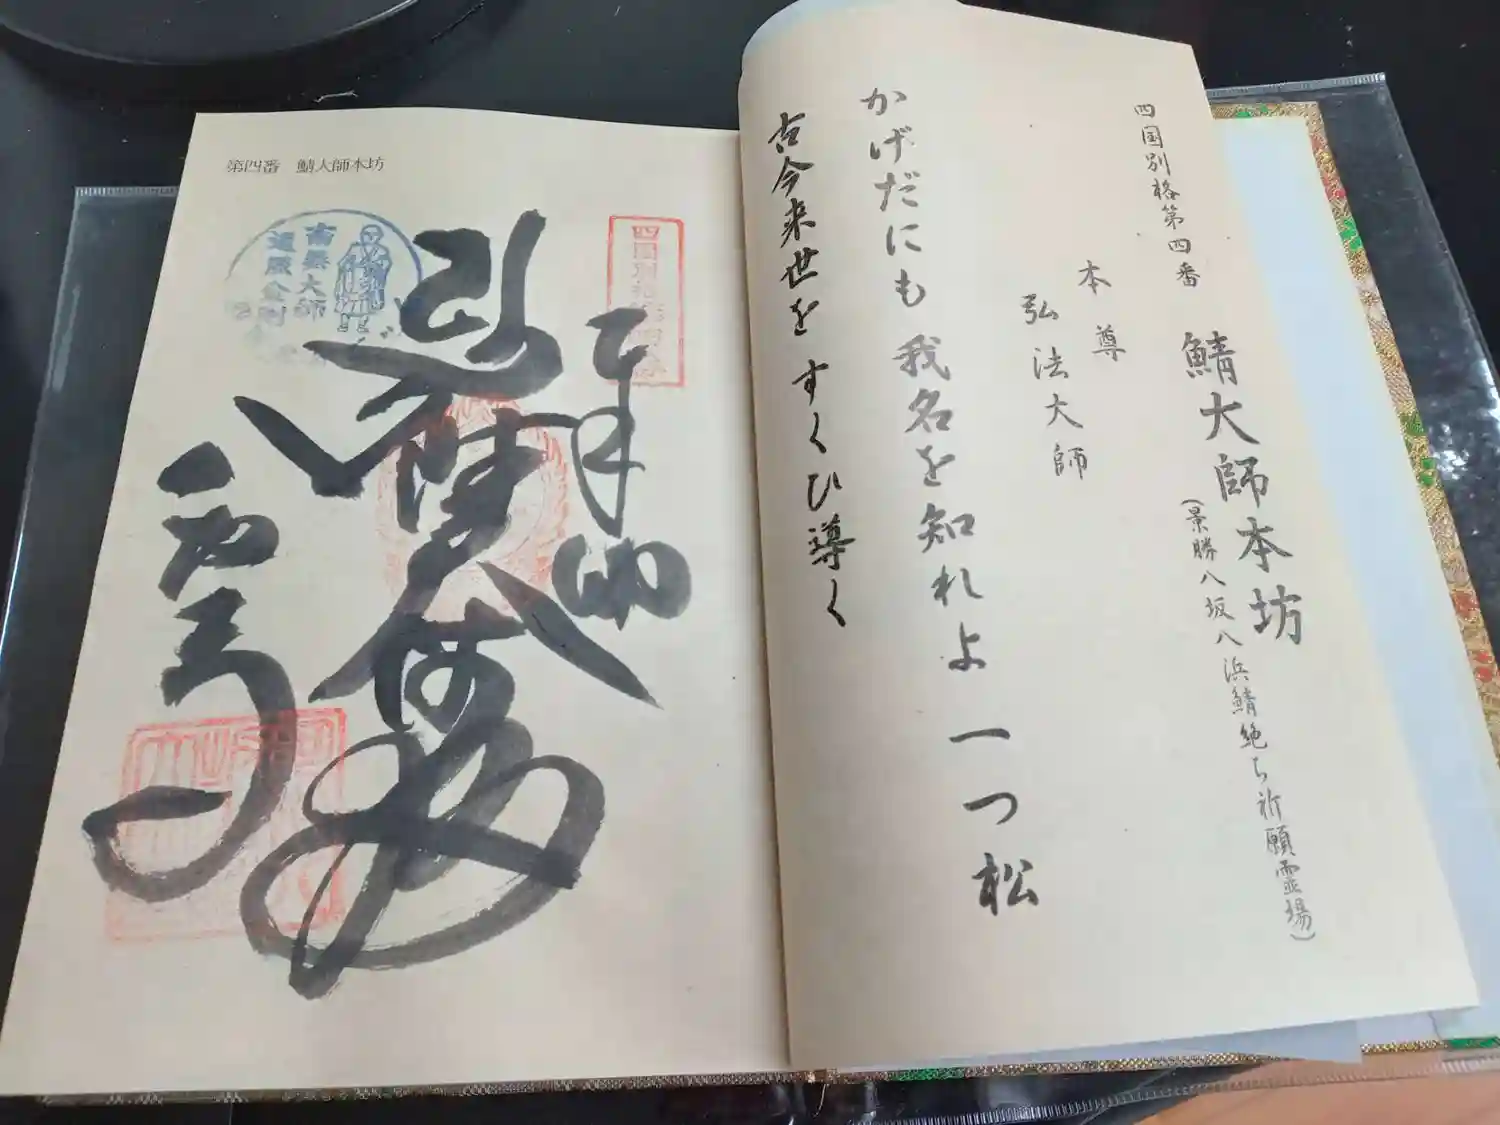 四国別格第四番
鯖大師本坊
(景勝八坂八浜鯖絶ち祈願霊場)
本尊
弘法大師
かげだにも我名を知れよ一つ松
古今来世をすくひ導く
第四番 鯖大師本坊
奉納
弘法大師
南無大師
遍照金剛